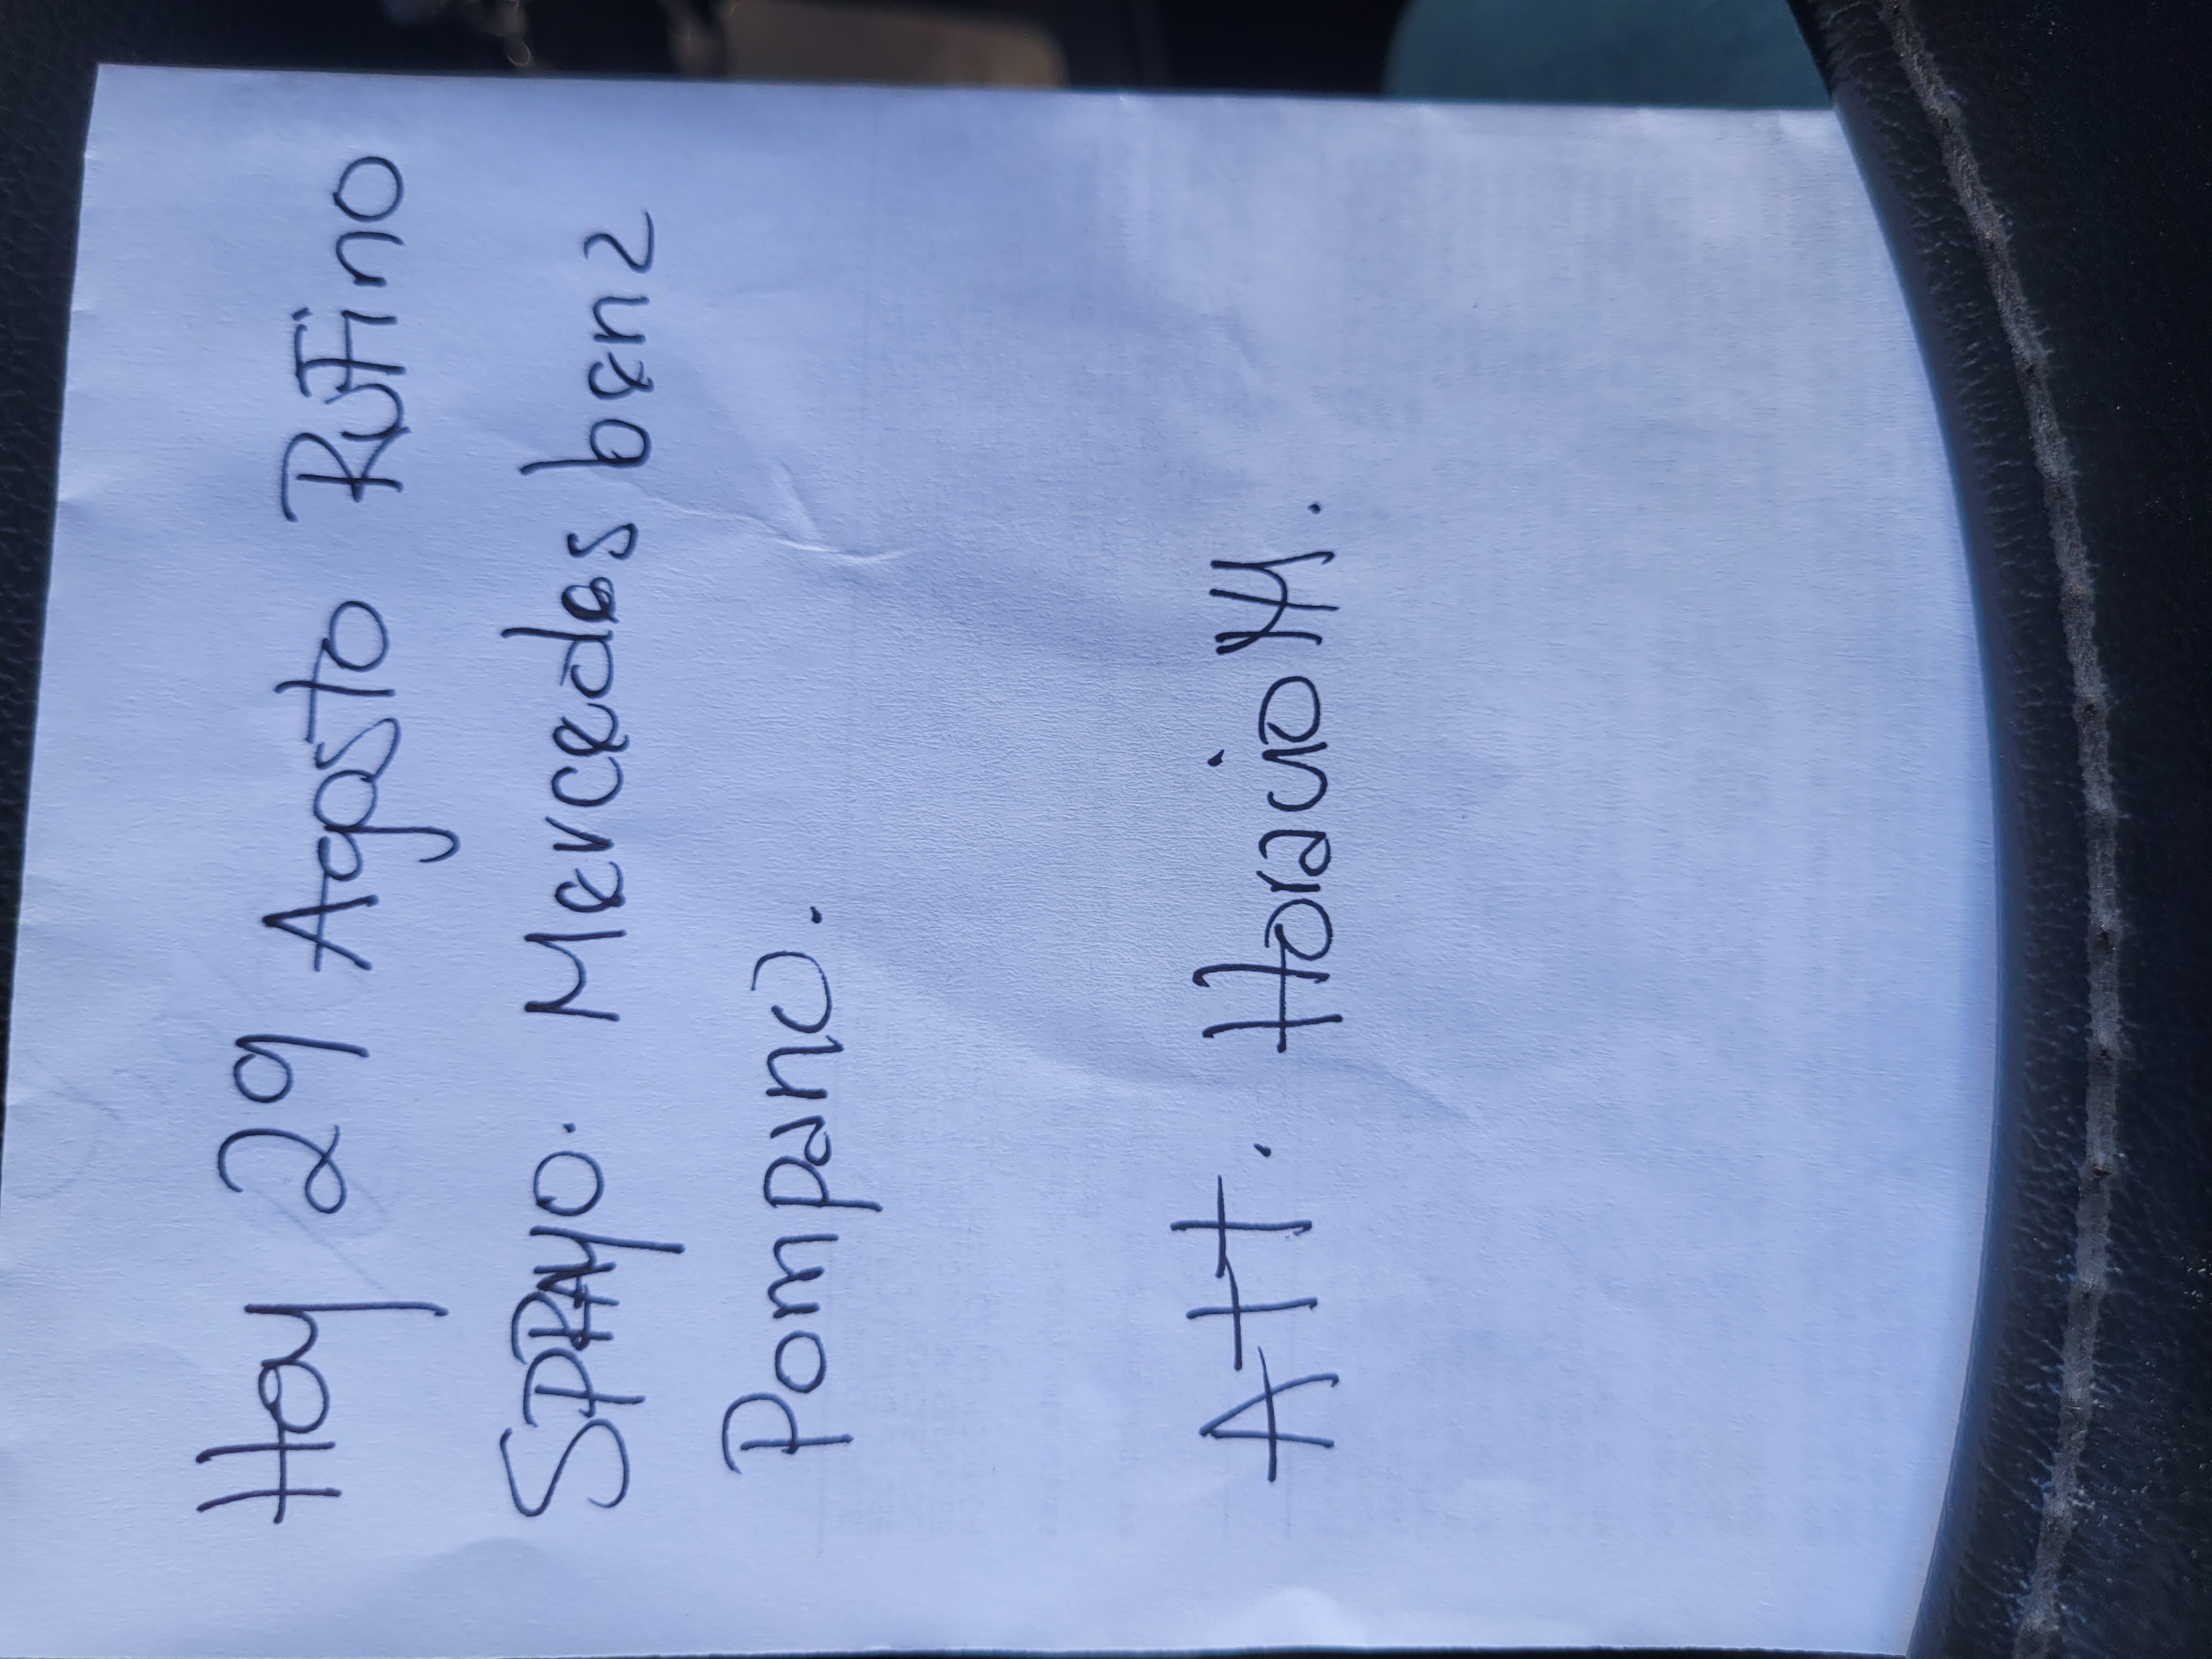 Hoy 29 Agosto Rufino
SPRAYO. Mercedes benz
Pompano.
ATT. Horacio M.